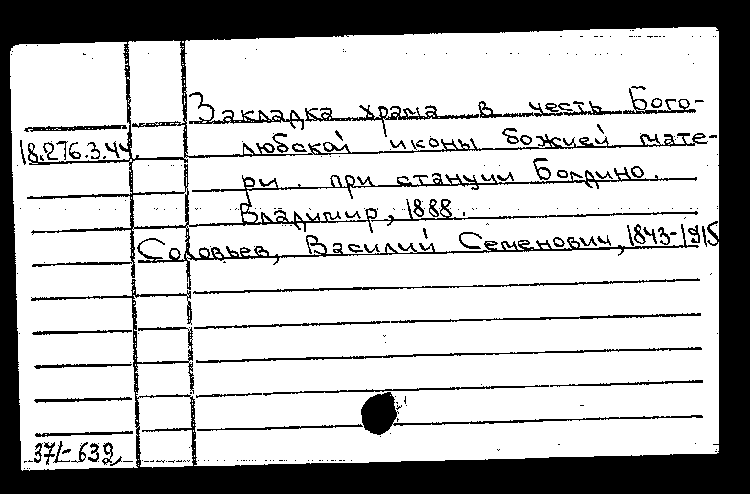 Закладка храма в честь Бого-
18.276.3.44. любской иконы божией мате-
ри. при станции Болдино.
Владимир, 1888.
Соловьев, Василий Семенович, 1843-1915
371-639